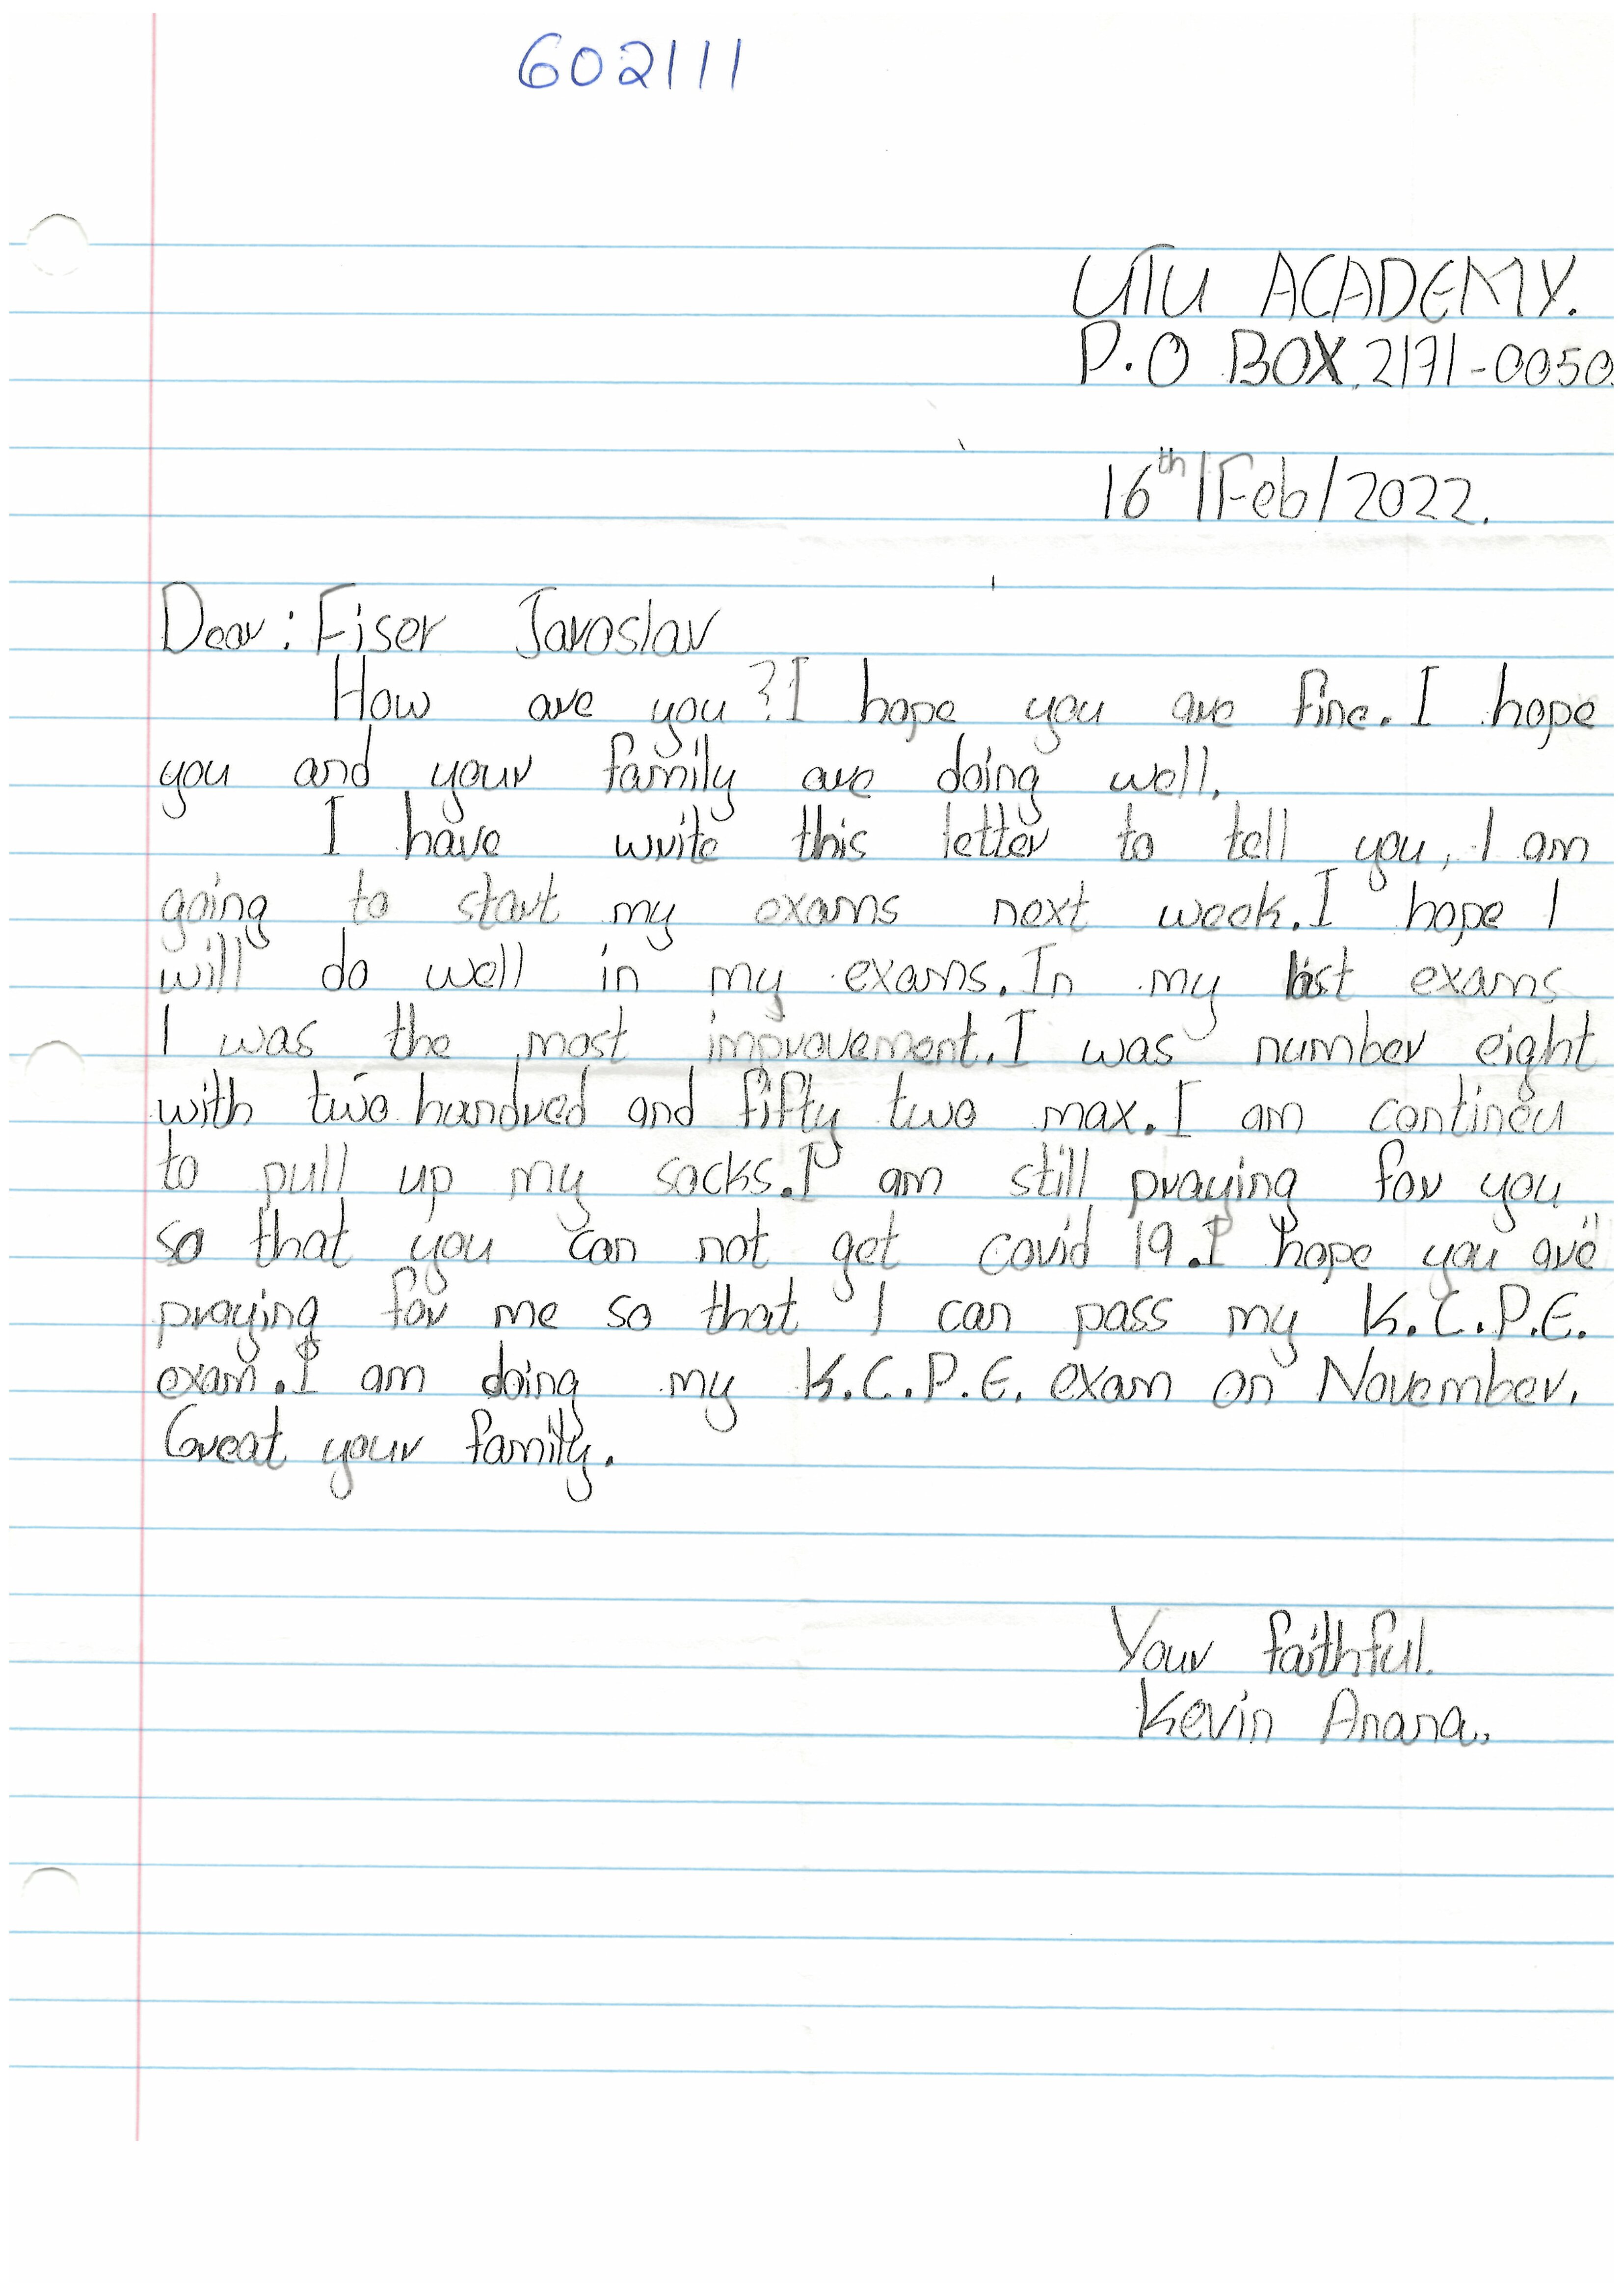 602111
UTU ACADEMY.
P.O BOX.2171-0050.
16th/Feb/2022.
Dear: Fiser Jaroslav
How are you? I hope you are fine. I hope
you and your family are doing well.
I have write this letter to tell you, I am
going to start my exams next week. I hope I
will do well in my exams. In my last exams
I was the most improvement. I was number eight
with two handred and fifty two max. I am contineu
to pull up my socks. I am still praying for you
so that you can not get covid 19. I hope you are
praying for me so that I can pass my K.C.P.E.
exam. I am doing my K.C.P.E. exam on November.
Great your family.
Your faithful.
Kevin Anana.